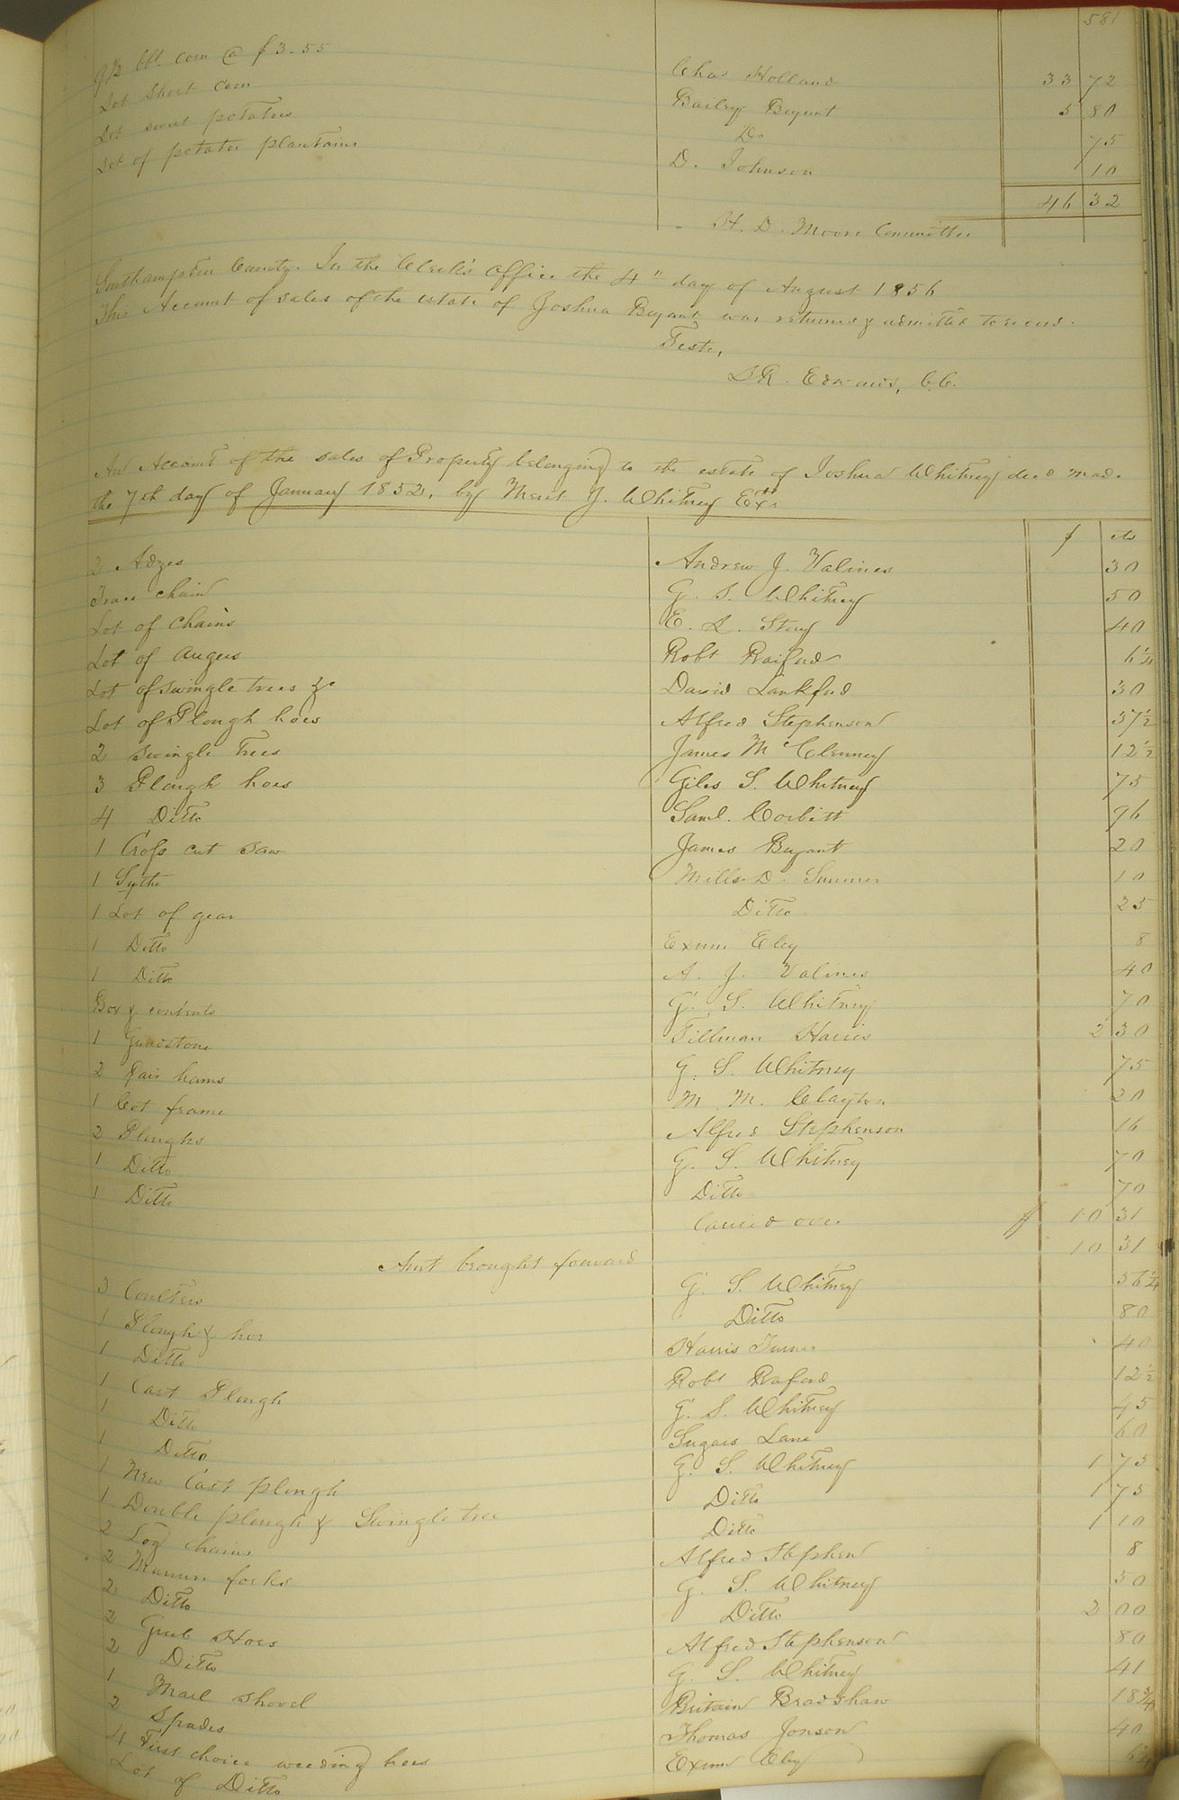 581
9½ bbl. corn @ $3.55 Chas Holland 33 72
Lot Short corn Bailey Bryant 5 80
Lot sweet potatoes Do 75
Lot of potatoe plantains D. Johnson 10
46 32
H. D. Moore Committee
Southampton County. In the Clerk's Office the 4" day of August 1856
This Account of sales of the estate of Joshua Bryant was returned & admitted to record.
Teste,
L R. Edwards, C.C.
An Account of the sales of Property belonging to the estate of Joshua Whitney decd made
the 7th day of January 1852, by Merit J. Whitney Exr
$ cts
2 Adzes Andrew J. Valines 30
Trace chain G. S. Whitney 50
Lot of Chains E. L. Story 40
Lot of augers Robt Raiford 6¼
Lot of swingle trees &c David Lankford 30
Lot of Plough hoes Alfred Stephenson 37½
2 Swingle Trees James McClenney 12½
3 Plough hoes Giles S. Whitney 75
4 Ditto Saml. Corbitt 96
1 Cross cut saw James Bryant 20
1 Sythe Mills D. Sumner 10
1 Lot of gear Ditto 25
1 Ditto Exum Eley 8
1 Ditto A. J. Valines 40
Box & contents G. S. Whitney 70
1 Grindstone Tillman Harris 2 30
2 Pair hams G. S. Whitney 75
1 Cot frame M. M. Clayton 20
2 Ploughs Alfred Stephenson 16
1 Ditto G. S. Whitney 70
1 Ditto Ditto 70
Carried over $ 10 31
Amt brought forward 10 31
3 Coulters G. S. Whitney 56¼
1 Plough & hoe Ditto 80
1 Ditto Harris Turner 40
1 Cast Plough Robt Raford 12½
1 Ditto G. S. Whitney 45
1 Ditto Sugars Lane 60
1 New Cast plough G. S. Whitney 1 75
1 Double plough & Swingle tree Ditto 1 75
2 Log chains Ditto 1 10
2 Manure forks Alfred Stephen 8
2 Ditto G. S. Whitney 50
2 Grub Hoes Ditto 2 00
2 Ditto Alfred Stephenson 80
1 Marl shovel G. S. Whitney 41
2 Spades Britain Bradshaw 18¾
4 First choice weeding hoes Thomas Jonson 40
Lot of Ditto Exum Eley 6¼